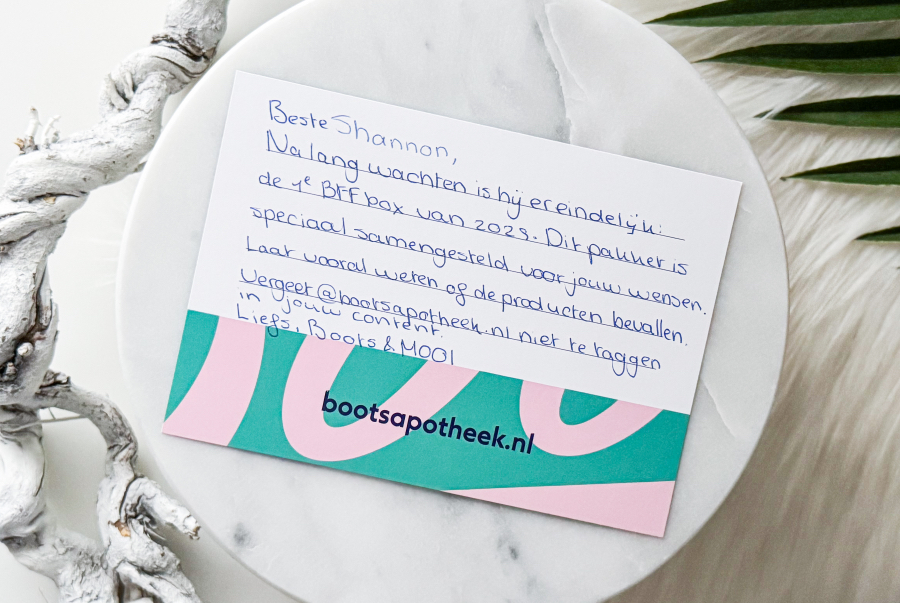 Beste Shannon,
Na lang wachten is hij er eindelijk:
de 1e BFF box van 2025. Dit pakket is
speciaal samengesteld voor jouw wensen.
Laat vooral weten of de producten bevallen.
Vergeet @bootsapotheek.nl niet te taggen
in jouw content.
Liefs, Boots & MOOI
bootsapotheek.nl